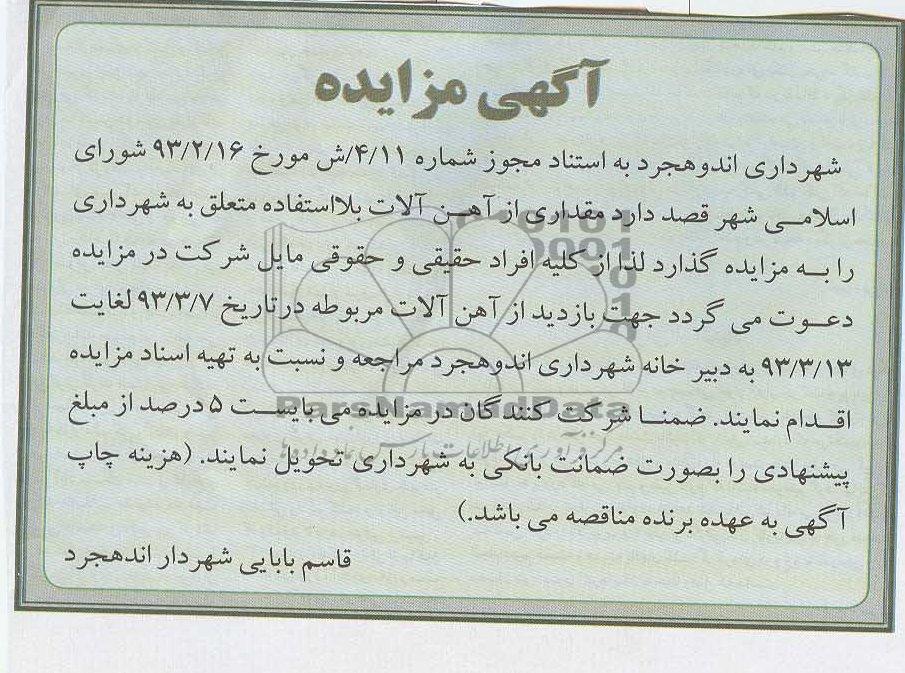 آگهی مزایده
شهرداری اندوهجرد به استناد مجوز شماره ۴/۱۱/ش مورخ ۹۳/۲/۱۶ شورای
اسلامی شهر قصد دارد مقداری از آهن آلات بلااستفاده متعلق به شهرداری
را به مزایده گذارد لذا از کلیه افراد حقیقی و حقوقی مایل شرکت در مزایده
دعوت می گردد جهت بازدید از آهن آلات مربوطه در تاریخ ۹۳/۳/۷ لغایت
۹۳/۳/۱۳ به دبیر خانه شهرداری اندوهجرد مراجعه و نسبت به تهیه اسناد مزایده
اقدام نمایند. ضمنا شرکت کنندگان در مزایده می بایست ۵ درصد از مبلغ
ParsNamadData
پیشنهادی را بصورت ضمانت بانکی به شهرداری تحویل نمایند. (هزینه چاپ
آگهی به عهده برنده مناقصه می باشد.)
قاسم بابایی شهردار اندهجرد